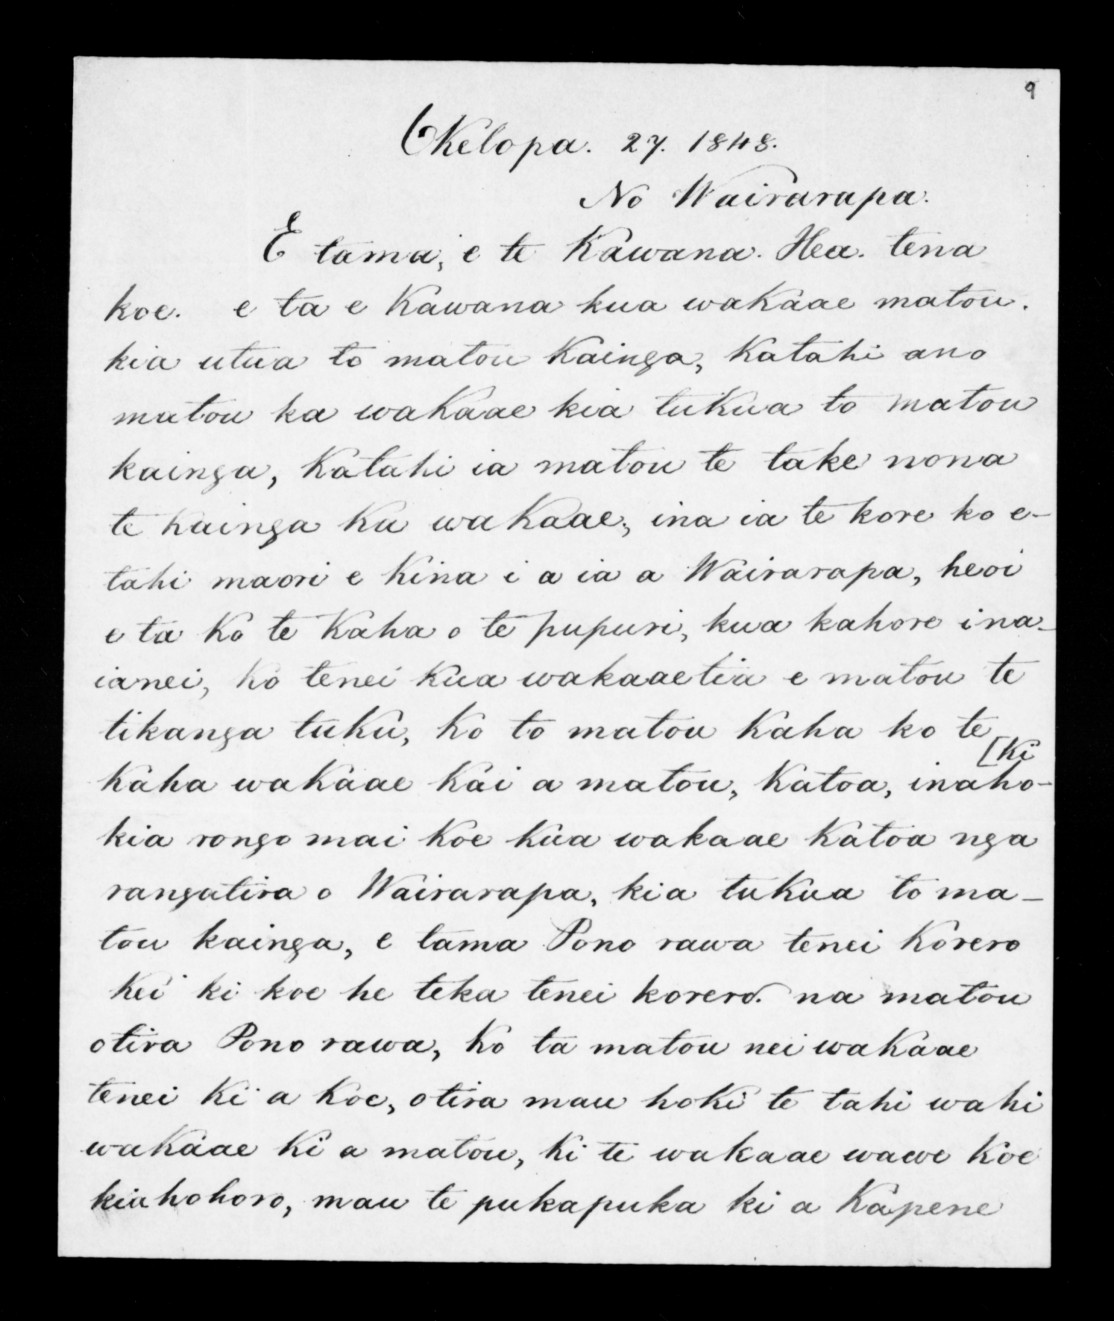 9
Oketopa. 27. 1848.
No Wairarapa.
E tama, e te Kawana. Hea. tena
koe. e ta e Kawana kua wakaae matou.
kia utua to matou Kainga, Katahi ano
matou ka wakaae kia tukua to matou
kainga, Katahi ia matou te take nona
te kainga Ka wakaae, ina ia te kore ko e-
tahi maori e kina i a ia a Wairarapa, heoi
e ta Ko te Kaha o te pupuri, kua kahore ina-
ianei, ko tenei Kua wakaaetia e matou te
tikanga tuku, Ko to matou Kaha ko te
Kaha wakaae Kai a matou, Katoa, inaho-
[Ki
kia rongo mai Koe Kua wakaae Katoa nga
rangatira o Wairarapa, kia tukua to ma-
tou kainga, e tama Pono rawa tenei Korero
Kei ki koe he teka tenei korero. na matou
otira Pono rawa, Ko ta matou nei wakaae
tenei Ki a Koe, otira mau hoki te tahi wahi
wakaae Ki a matou, Ki te wakaae wawe Koe
kia hohoro, mau te pukapuka ki a Kapene